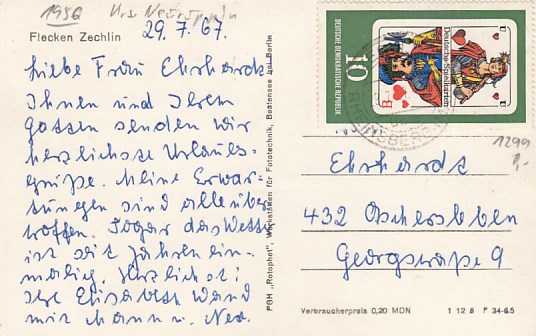 1986 Krs. Neuruppin
Flecken Zechlin
29.7.67.
Liebe Frau Ehrhardt
Ihnen und Ihrem
Gatten senden wir
herzlichste Urlaubs-
grüße. Meine Erwar-
tungen sind alle über
troffen. Sogar das Wetter
ist seit Jahren ein-
malig. Herzlichst:
Ihre Elisabeth Wand
mit Mann u.
PGH „Rotophot“, Werkstätten für Fototechnik, Bestensee bei Berlin
DEUTSCHE DEMOKRATISCHE REPUBLIK
10
Deutsche Spielkarten
B
U
U
RHEINSBERG
1299
1,-
Ehrhardt
432 Aschersleben
Georgstraße 9
Verbraucherpreis 0,20 MDN
1 12 8 F 34-65